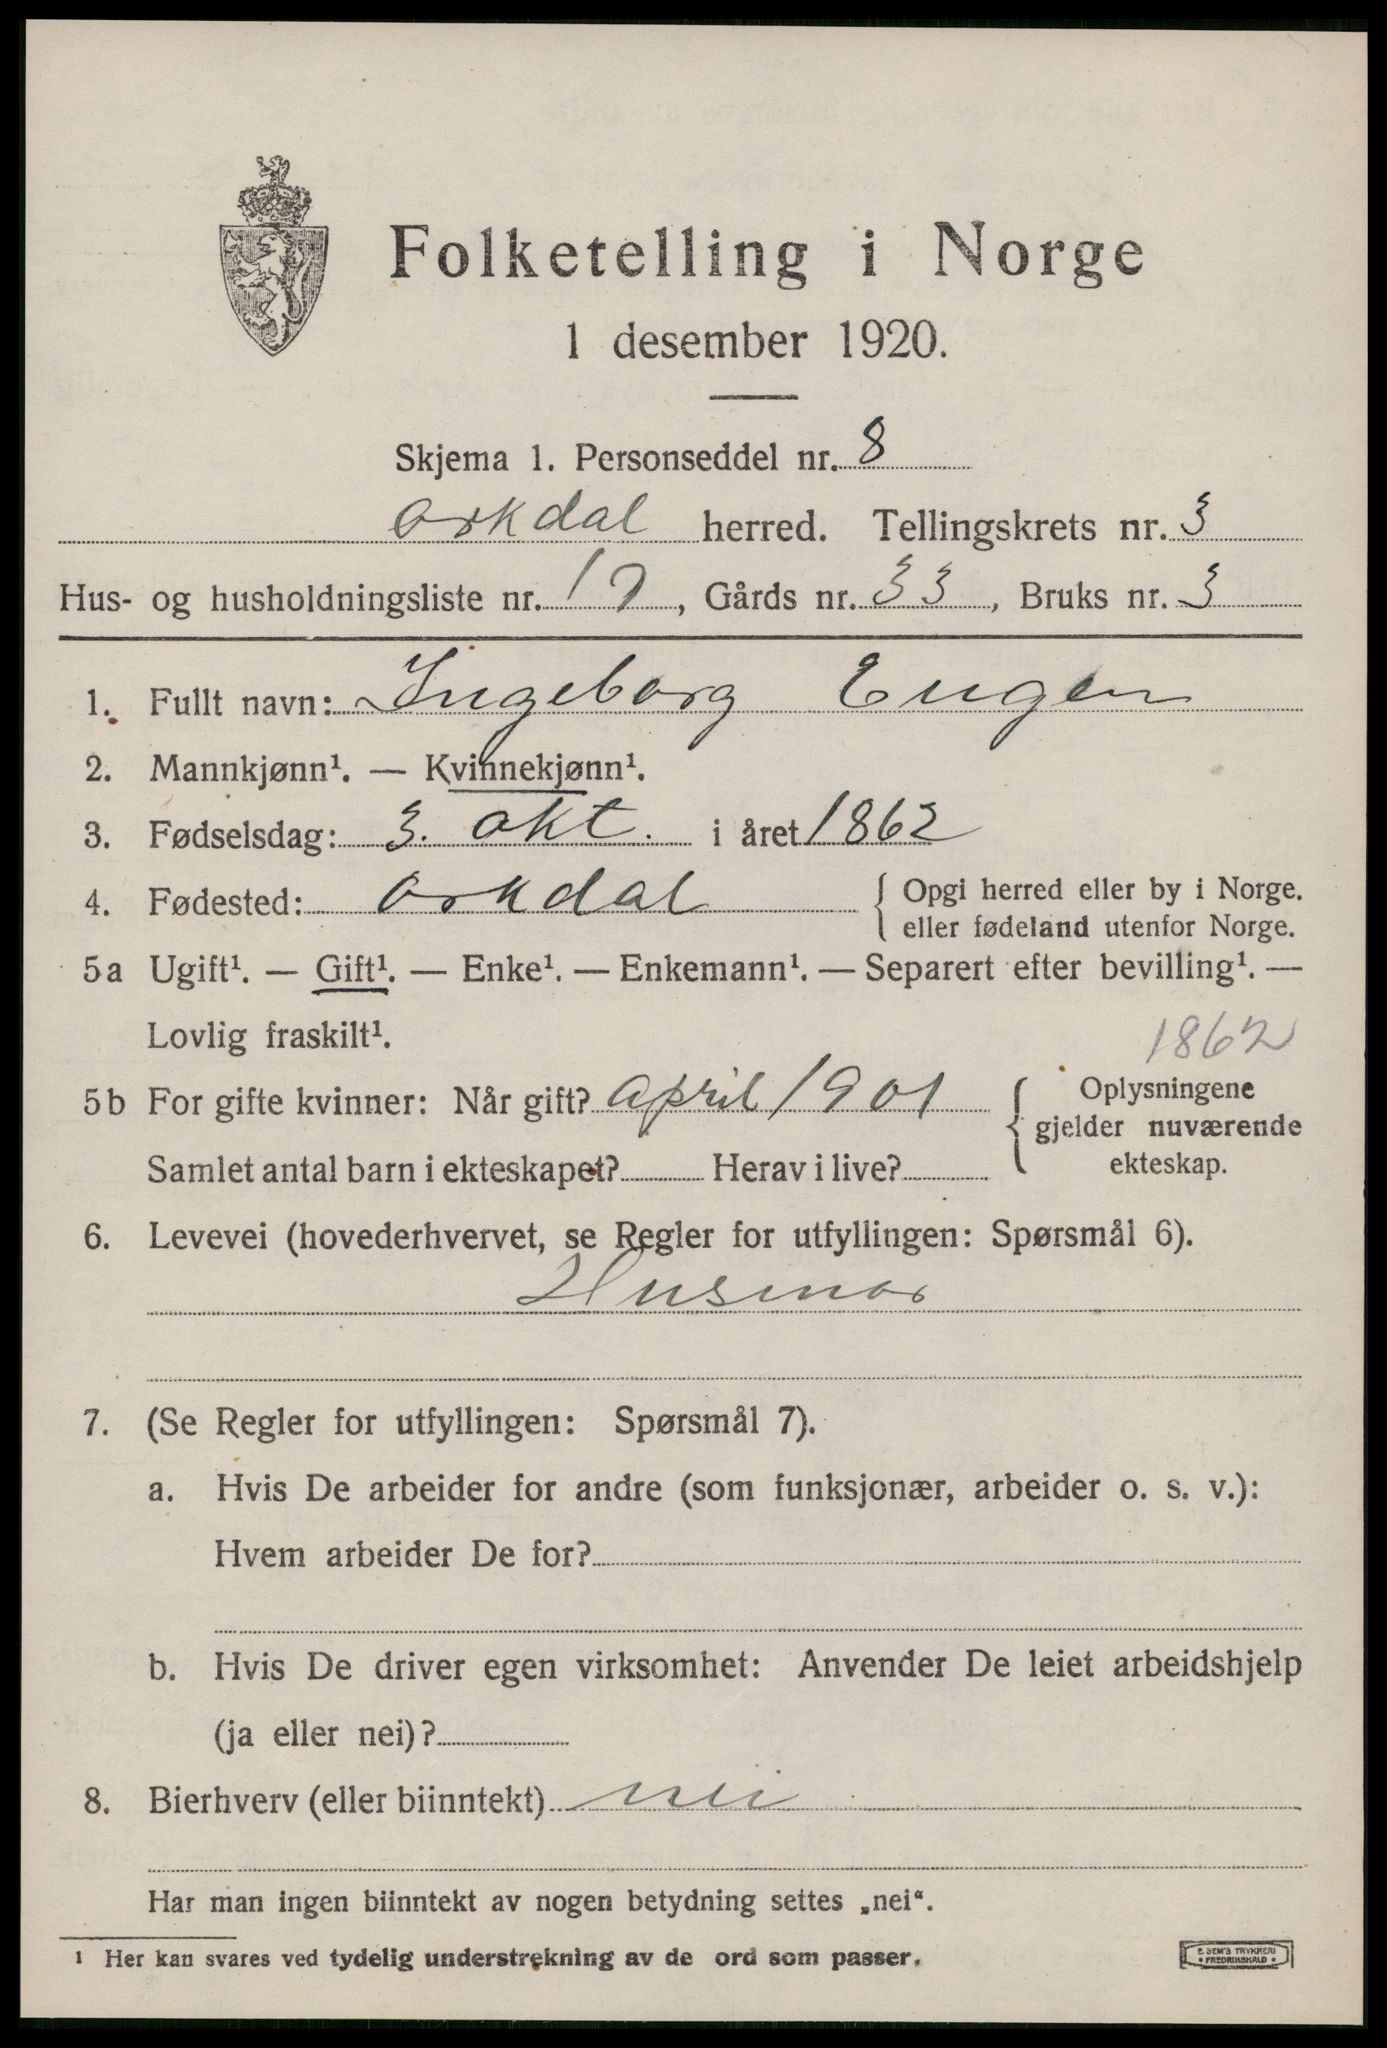 Folketelling i Norge
1 desember 1920.
Skjema 1. Personseddel nr. 8
Orkdal herred. Tellingskrets nr. 3
Hus- og husholdningsliste nr. 19, Gårds nr. 33, Bruks nr. 3
1. Fullt navn: Ingeborg Engen
2. Mannkjønn¹. — Kvinnekjønn¹.
3. Fødselsdag: 3. okt. i året 1862
4. Fødested: Orkdal { Opgi herred eller by i Norge.
eller fødeland utenfor Norge.
5a Ugift¹. — Gift¹. — Enke¹. — Enkemann¹. — Separert efter bevilling¹. —
Lovlig fraskilt¹.
1862
5b For gifte kvinner: Når gift? april 1901
Samlet antal barn i ekteskapet? Herav i live?
{ Oplysningene
gjelder nuværende
ekteskap.
6. Levevei (hovederhvervet, se Regler for utfyllingen: Spørsmål 6).
Husmor
7. (Se Regler for utfyllingen: Spørsmål 7).
a. Hvis De arbeider for andre (som funksjonær, arbeider o. s. v.):
Hvem arbeider De for?
b. Hvis De driver egen virksomhet: Anvender De leiet arbeidshjelp
(ja eller nei)?
8. Bierhverv (eller biinntekt) nei
Har man ingen biinntekt av nogen betydning settes „nei“.
¹ Her kan svares ved tydelig understrekning av de ord som passer.
E SEM'S TRYKKERI
• FREDRIKSHALD •